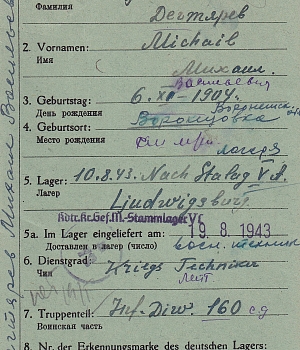 Фамилия
Дегтярев
2. Vornamen: Michail
Имя
Михаил
Васильевич
3. Geburtstag: 6. XI - 1904.
День рождения
4. Geburtsort: Воронцовка
Место рождения
лагеря
5. Lager: 10.8.43. Nach Stalag V A.
Лагерь
Ludwigsburg
Kdtr. Kr. Gef. M.-Stammlager V
5a. Im Lager eingeliefert am: 19. 8. 1943
Доставлен в лагерь (число)
воен. техник
6. Dienstgrad: Kriegs Techniker
Чин
лейт.
7. Truppenteil: Inf. Div. 160 с.д
Воинская часть
8. Nr. der Erkennungsmarke des deutschen Lagers:
Дегтярев Михаил Васильев